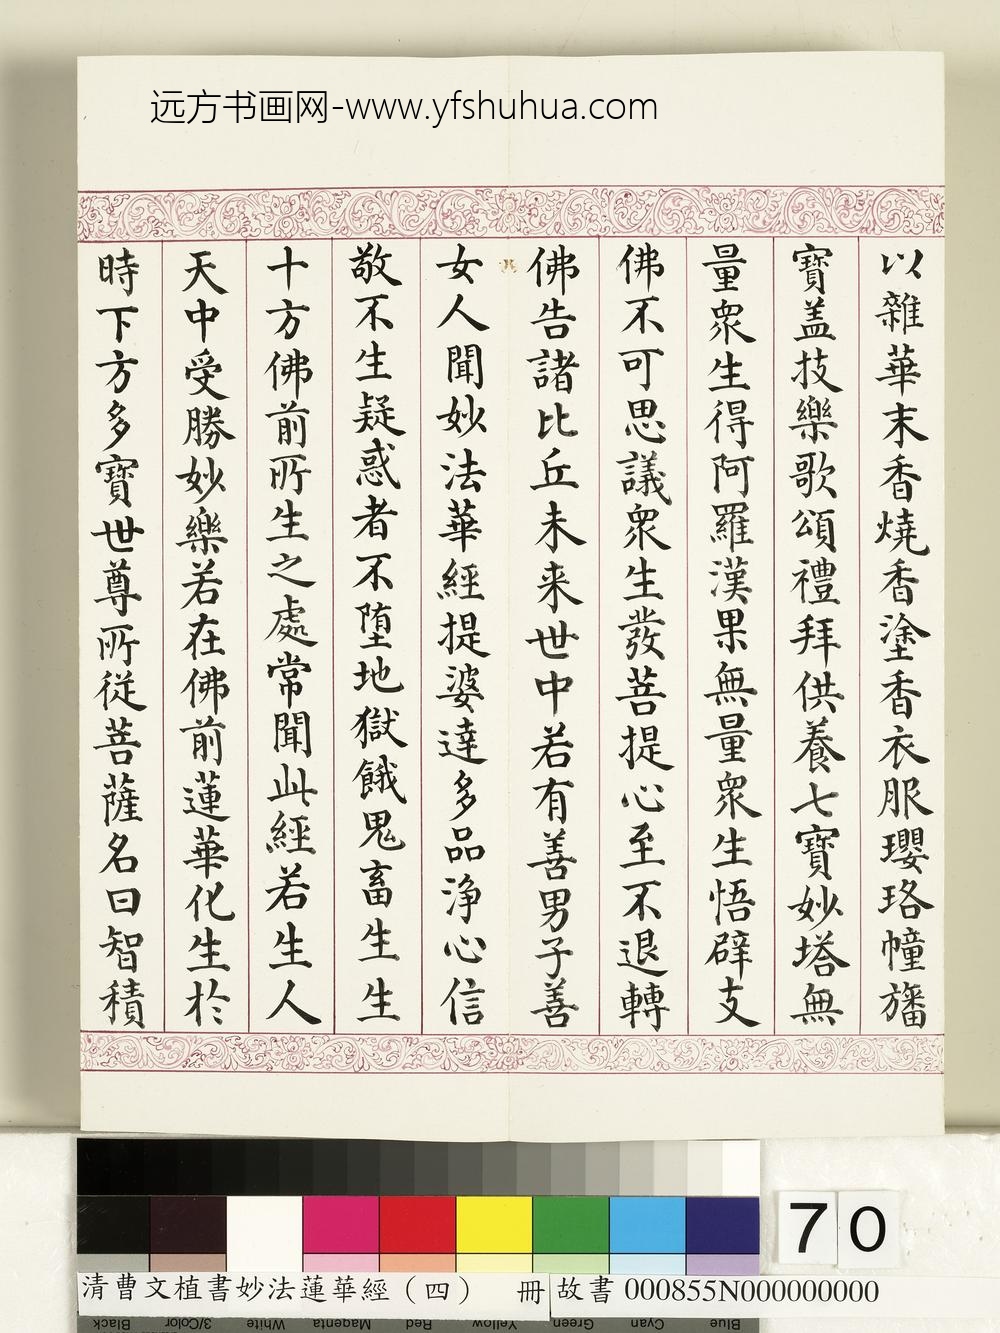 远方书画网-www.yfshuhua.com
以雜華末香燒香塗香衣服瓔珞幢旛
寶盖技樂歌頌禮拜供養七寶妙塔無
量衆生得阿羅漢果無量衆生悟辟支
佛不可思議衆生發菩提心至不退轉
佛告諸比丘未来世中若有善男子善
女人聞妙法華經提婆達多品淨心信
敬不生疑惑者不墮地獄餓鬼畜生生
十方佛前所生之處常聞此經若生人
天中受勝妙樂若在佛前蓮華化生於
時下方多寶世尊所從菩薩名曰智積
70
清曹文植書妙法蓮華經（四） 冊 故書 000855N000000000
Black 3/Color White Magenta Red Yellow Green Cyan Blue